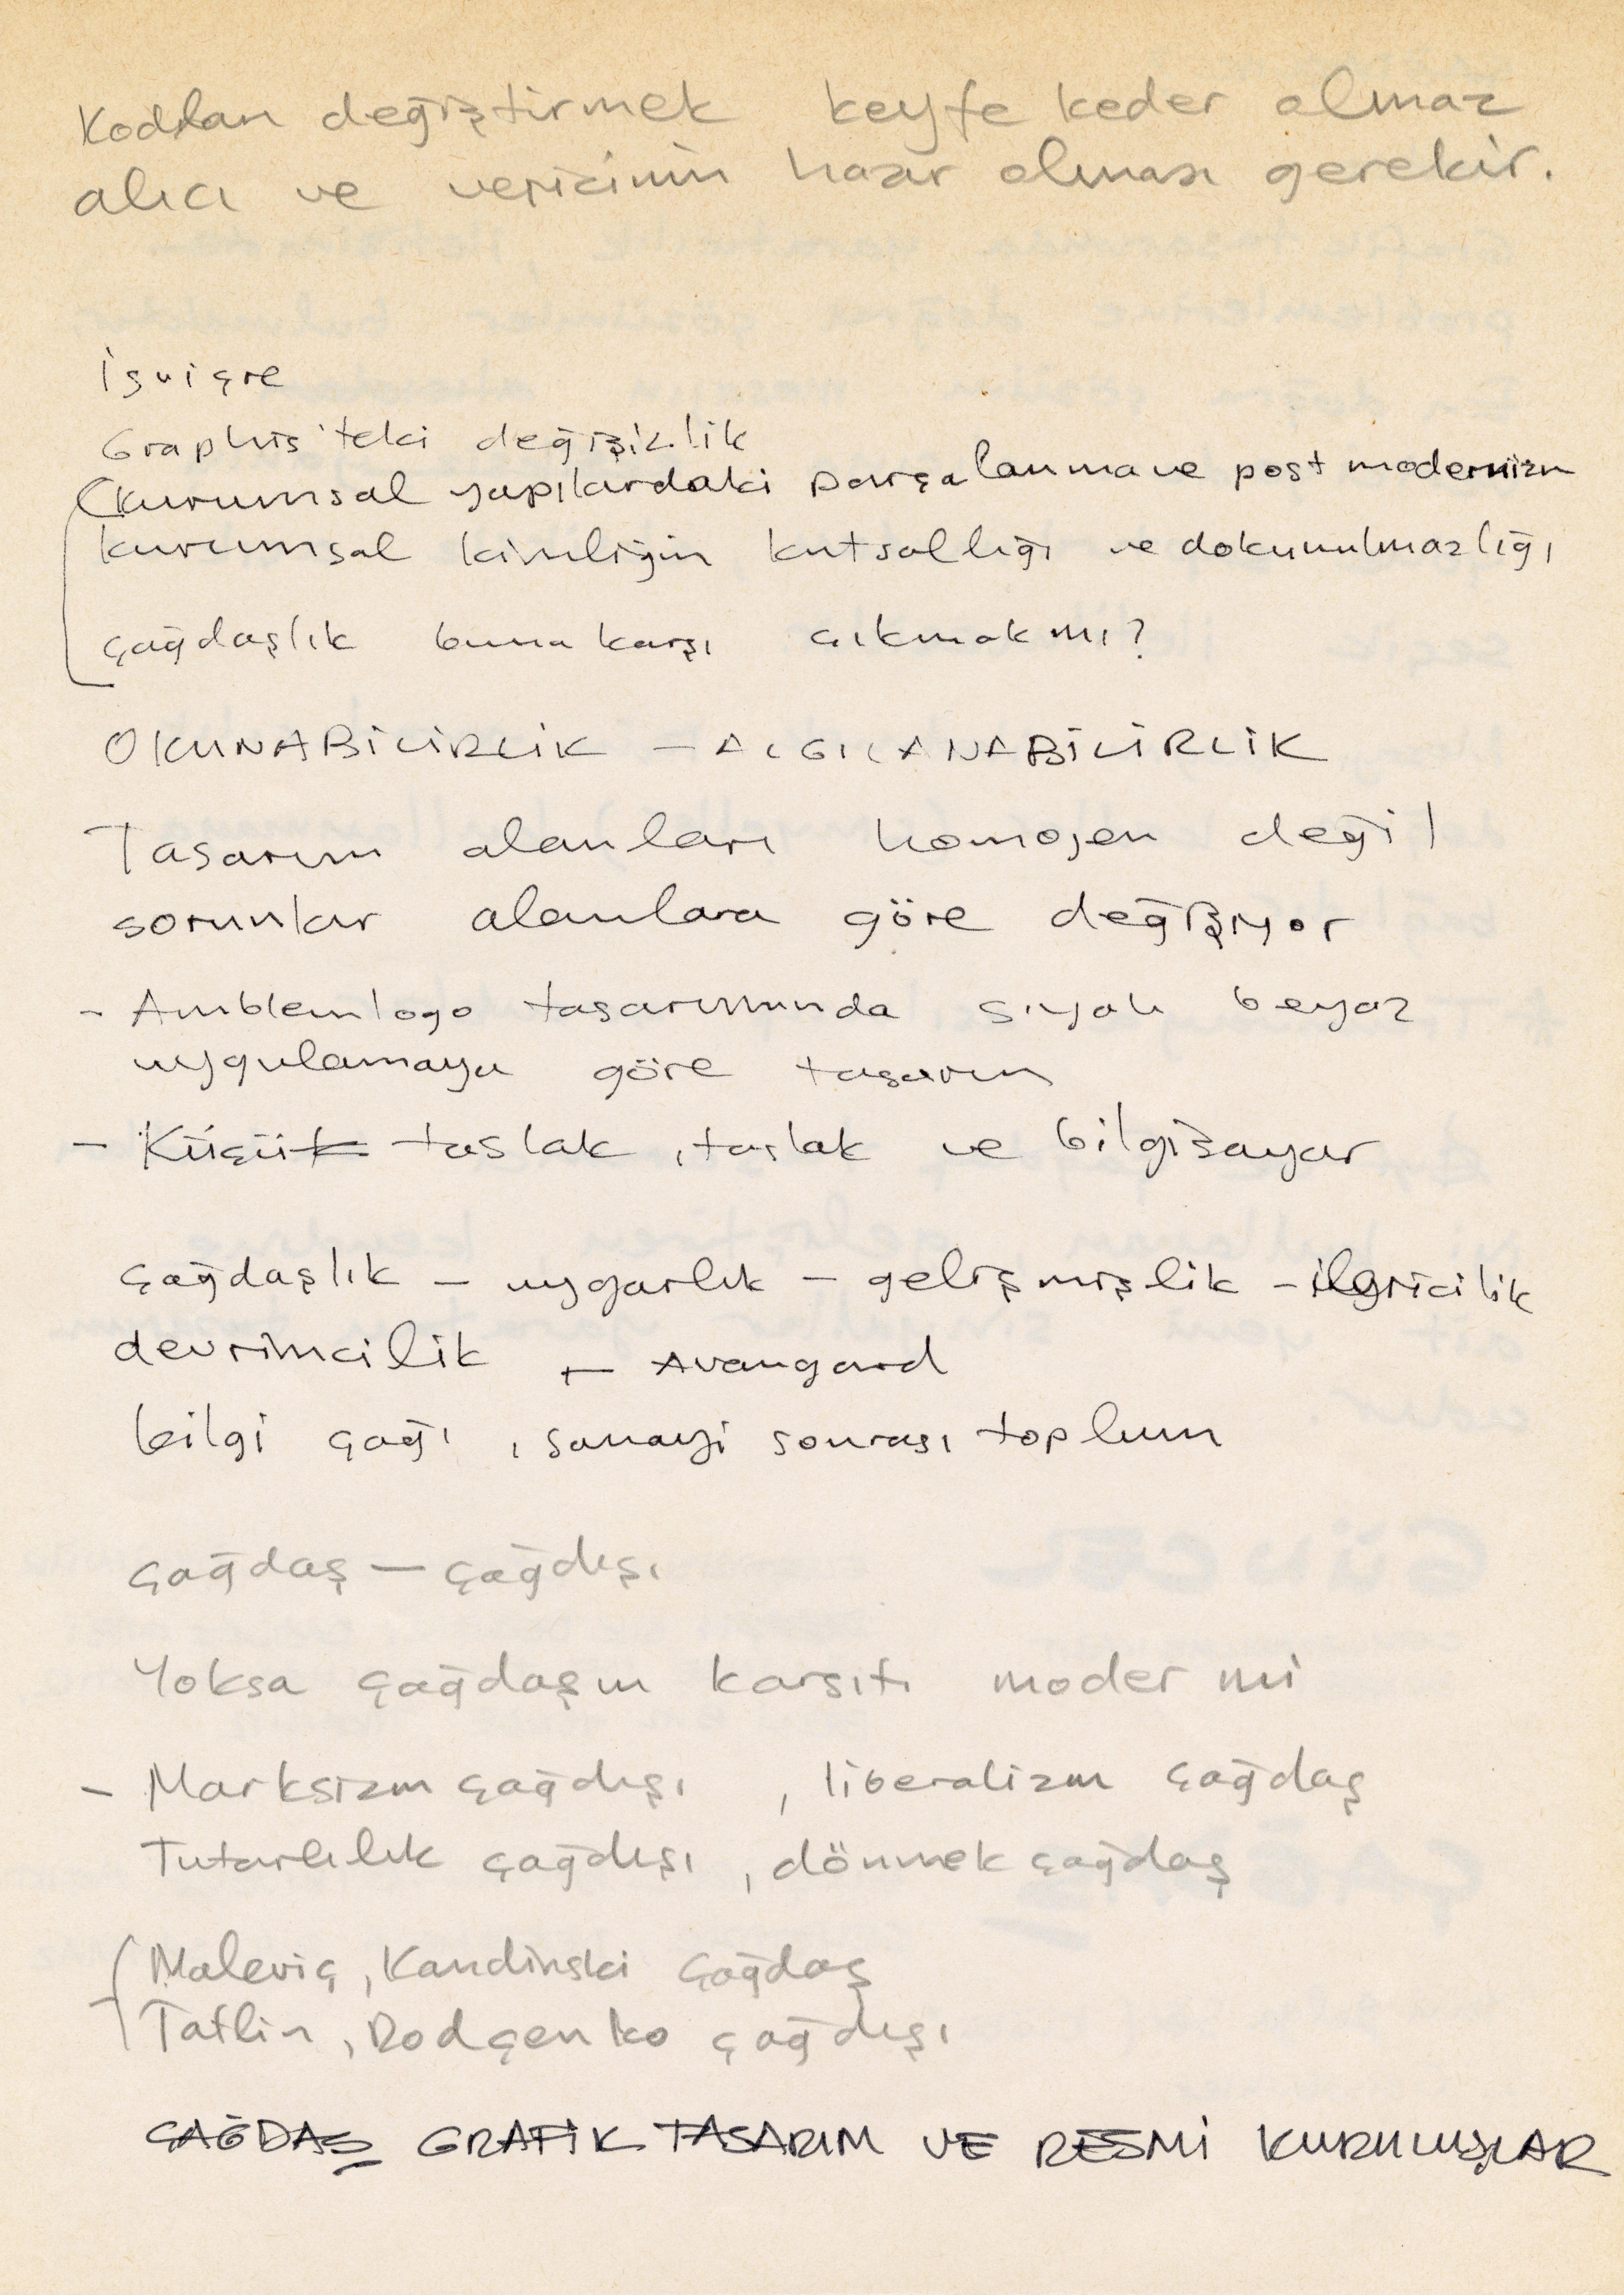 Kodları değiştirmek keyfe keder olmaz
alıcı ve vericinin hazır olması gerekir.
İsviçre
Graphis'teki değişiklik
(kurumsal yapılardaki parçalanma ve post modernizm
kurumsal kimliğin kutsallığı ve dokunulmazlığı
çağdaşlık buna karşı çıkmak mı?
OKUNABİLİRLİK – ALGILANABİLİRLİK
Tasarım alanları homojen değil
sorunlar alanlara göre değişiyor
- Amblem logo tasarımında siyah beyaz
uygulamaya göre tasarım
- Küçük taslak, taslak ve bilgisayar
çağdaşlık – uygarlık – gelişmişlik – ilericilik
devrimcilik – Avangard
bilgi çağı, sanayi sonrası toplum
çağdaş – çağdışı
Yoksa çağdaşın karşıtı moder mi
- Marksizm çağdışı, liberalizm çağdaş
Tutarlılık çağdışı, dönmek çağdaş
Maleviç, Kandinski çağdaş
Tatlin, Rodçenko çağdışı
ÇAĞDAŞ GRAFİK TASARIM VE RESMİ KURULUŞLAR